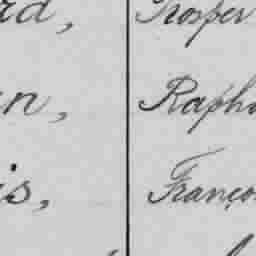 rd, Prosper
n, Rapha
is, Franço